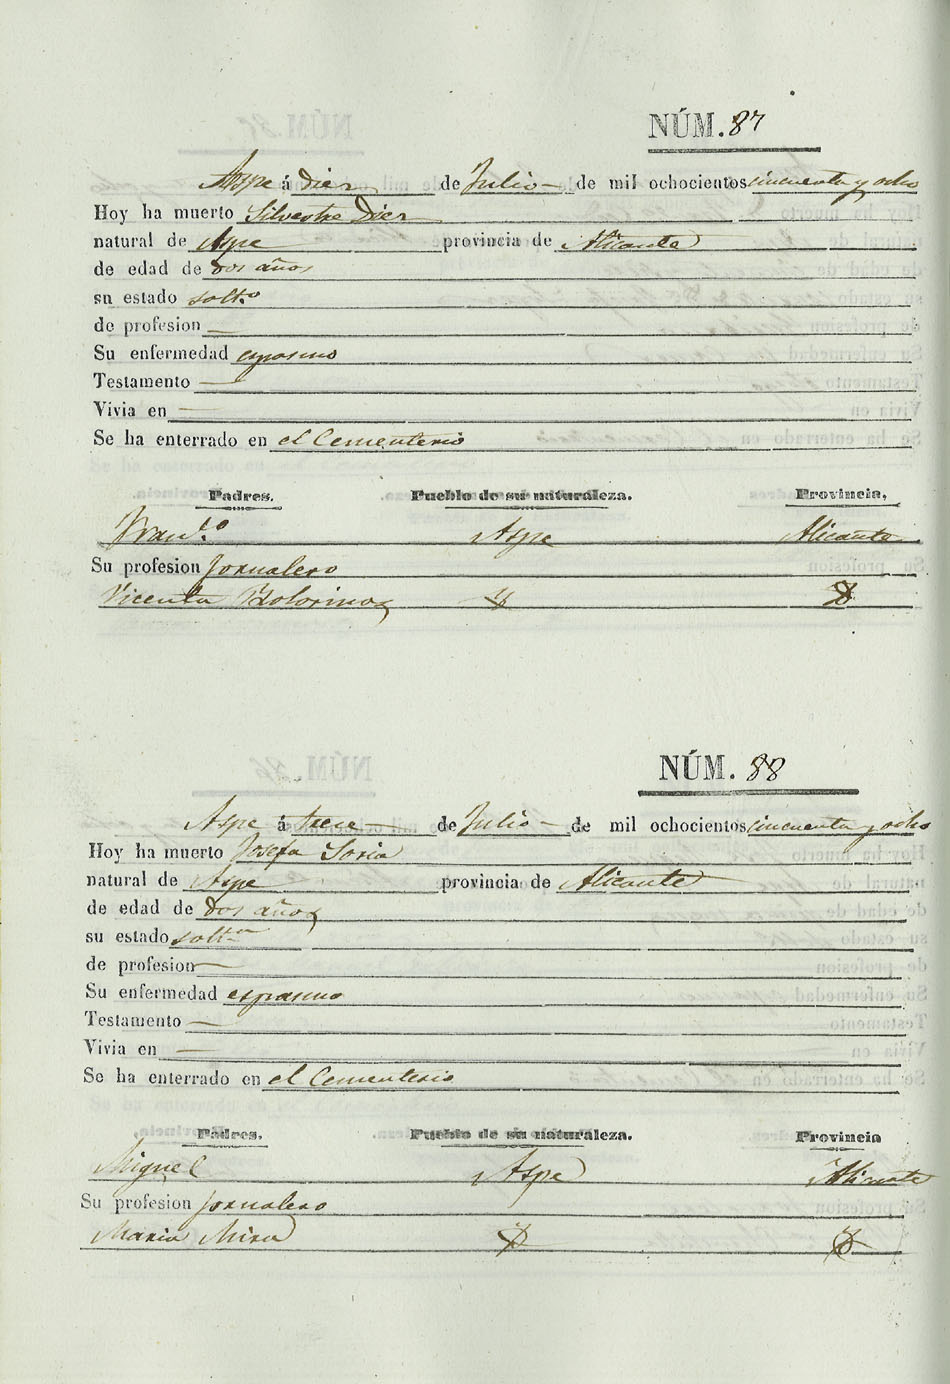 NÚM. 87
Aspe á Diez de Julio de mil ochocientos cincuenta y ocho
Hoy ha muerto Silvestre Diez
natural de Aspe provincia de Alicante
de edad de dos años
su estado solt.o
de profesion —
Su enfermedad espasmo
Testamento —
Vivia en —
Se ha enterrado en el Cementerio
Padres. Pueblo de su naturaleza. Provincia.
Fran.co Aspe Alicante
Su profesion jornalero
Vicenta
NÚM. 88
Aspe á trece de Julio de mil ochocientos cincuenta y ocho
Hoy ha muerto Josefa Soria
natural de Aspe provincia de Alicante
de edad de dos años
su estado solt.a
de profesion —
Su enfermedad espasmo
Testamento —
Vivia en —
Se ha enterrado en el Cementerio
Padres. Pueblo de su naturaleza. Provincia
Miguel Aspe Alicante
Su profesion jornalero
Maria Mira